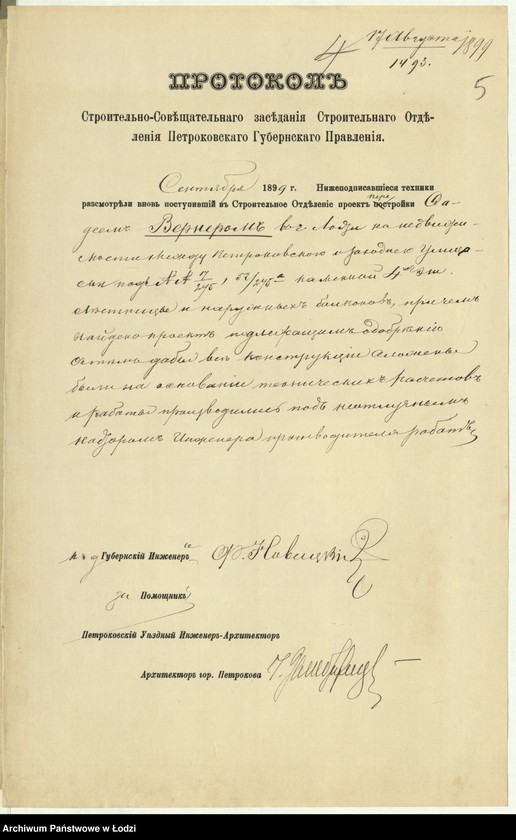 4 17 Августа 1899
1493.
5
ПРОТОКОЛЪ
Строительно-Совѣщательнаго засѣданія Строительнаго Отдѣ-
ленія Петроковскаго Губернскаго Правленія.
Сентября 1899 г. Нижеподписавшіеся техники
разсмотрѣли вновь поступившій въ Строительное Отдѣленіе проектъ постройки пере Фа-
деемъ Вернеромъ въ г. Лодзи на недвижи-
мости между Петроковскою и Заходнею Улица-
подъ №№ 7/275 и 52/275а каменной 4хъ эт.
лѣстницы и наружныхъ балконовъ, при чемъ
найдено проектъ подлежащимъ одобренію
съ тѣмъ дабы всѣ конструкціи
были на основаніи техническихъ расчетовъ
и работы производились подъ неотлучнымъ
надзоромъ Инженера производителя работъ
Губернскій Инженеръ Ф. Новицкій
за Помощникъ
Петроковскій Уѣздный Инженеръ-Архитекторъ
Архитекторъ гор. Петрокова
Archiwum Państwowe w Łodzi